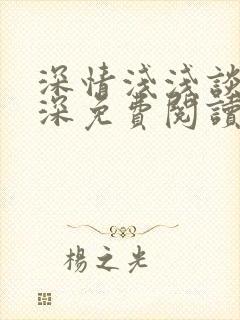 深情淺淺談
深免費閱讀
楊之光